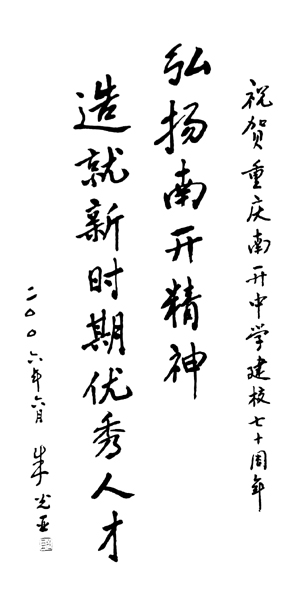 祝贺重庆南开中学建校七十周年
弘扬南开精神
造就新时期优秀人才
二〇〇六年六月 朱光亚